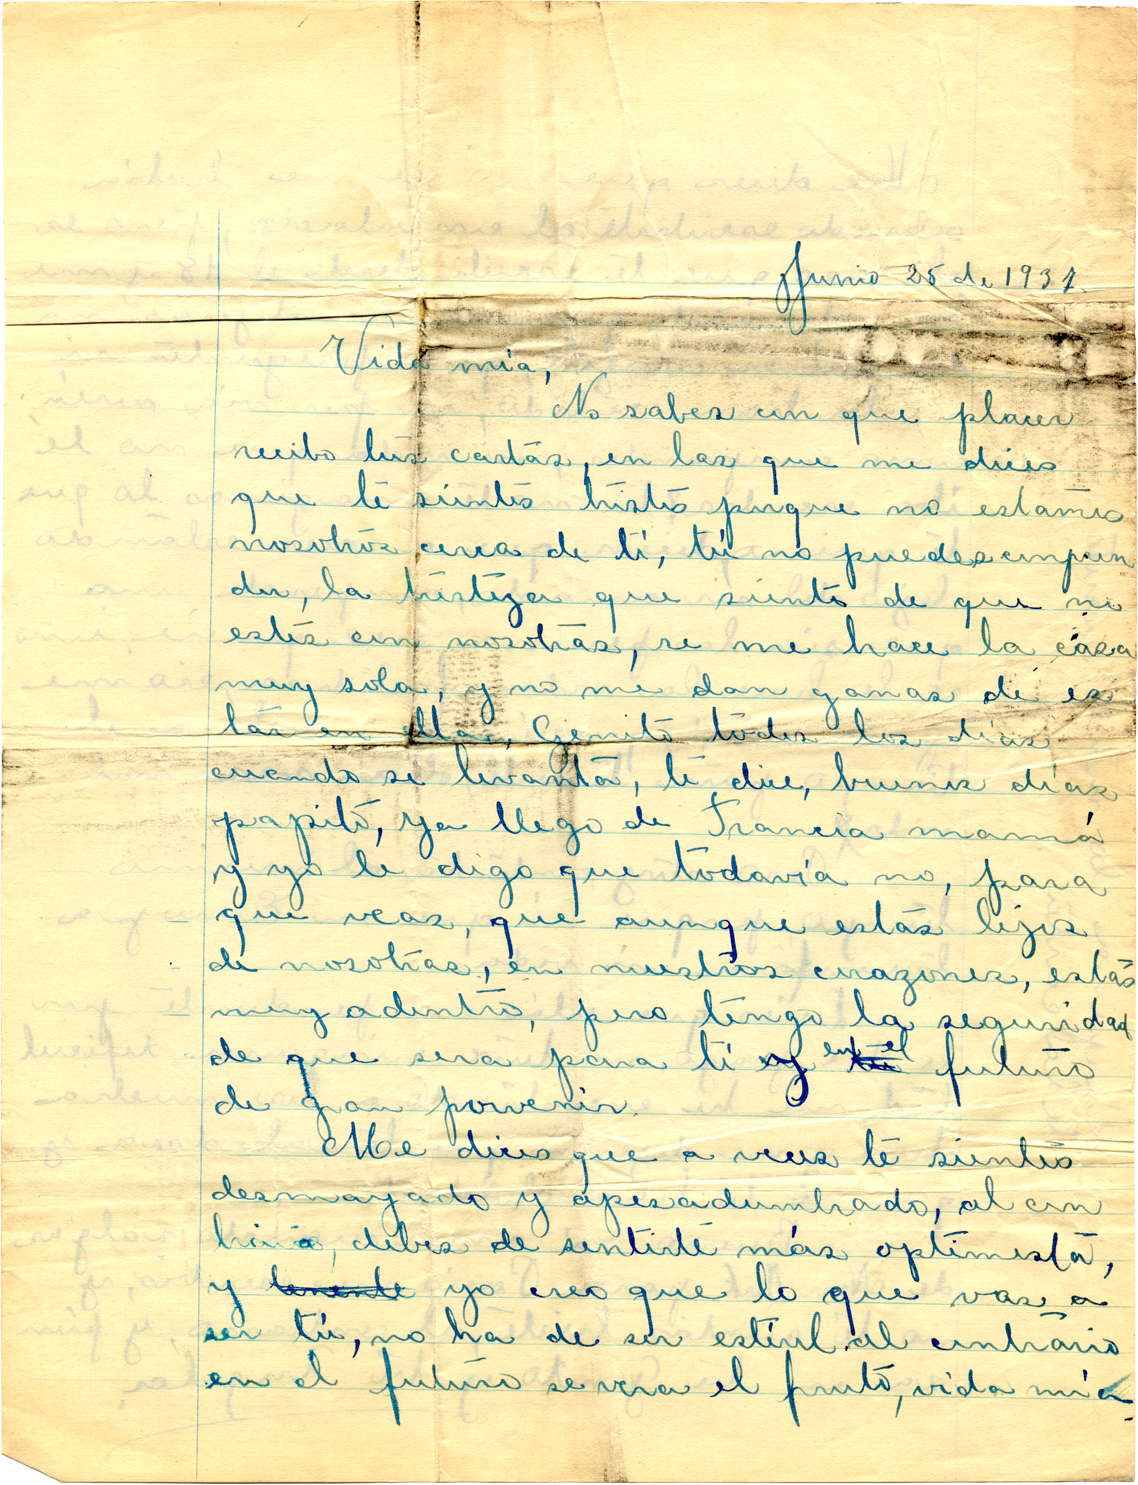 Junio 25 de 1931.
Vida mía,
No sabes con que placer
recibo tus cartas, en las que me dices
que te sientes triste porque no estamos
nosotros cerca de ti, tú no puedes compren
der, la tristeza que siento de que no
estés con nosotras, se me hace la casa
muy sola, y no me dan ganas de es
tar en ella, Genito todos los días
cuando se levanta, te dice, buenos días
papito, ya llego de Francia mamá
y yo le digo que todavía no, para
que veas, que aunque estás lejos
de nosotras, en nuestros corazones, estás
muy adentro, pero tengo la seguridad
de que sera para ti y en el futuro
de gran porvenir.
Me dices que a veces te sientes
desmayado y apesadumbrado, al con
trario, debes de sentirte más optimista,
y yo creo que lo que vas a
ser tú, no ha de ser estéril al contrario
en el futuro se vera el fruto, vida mía